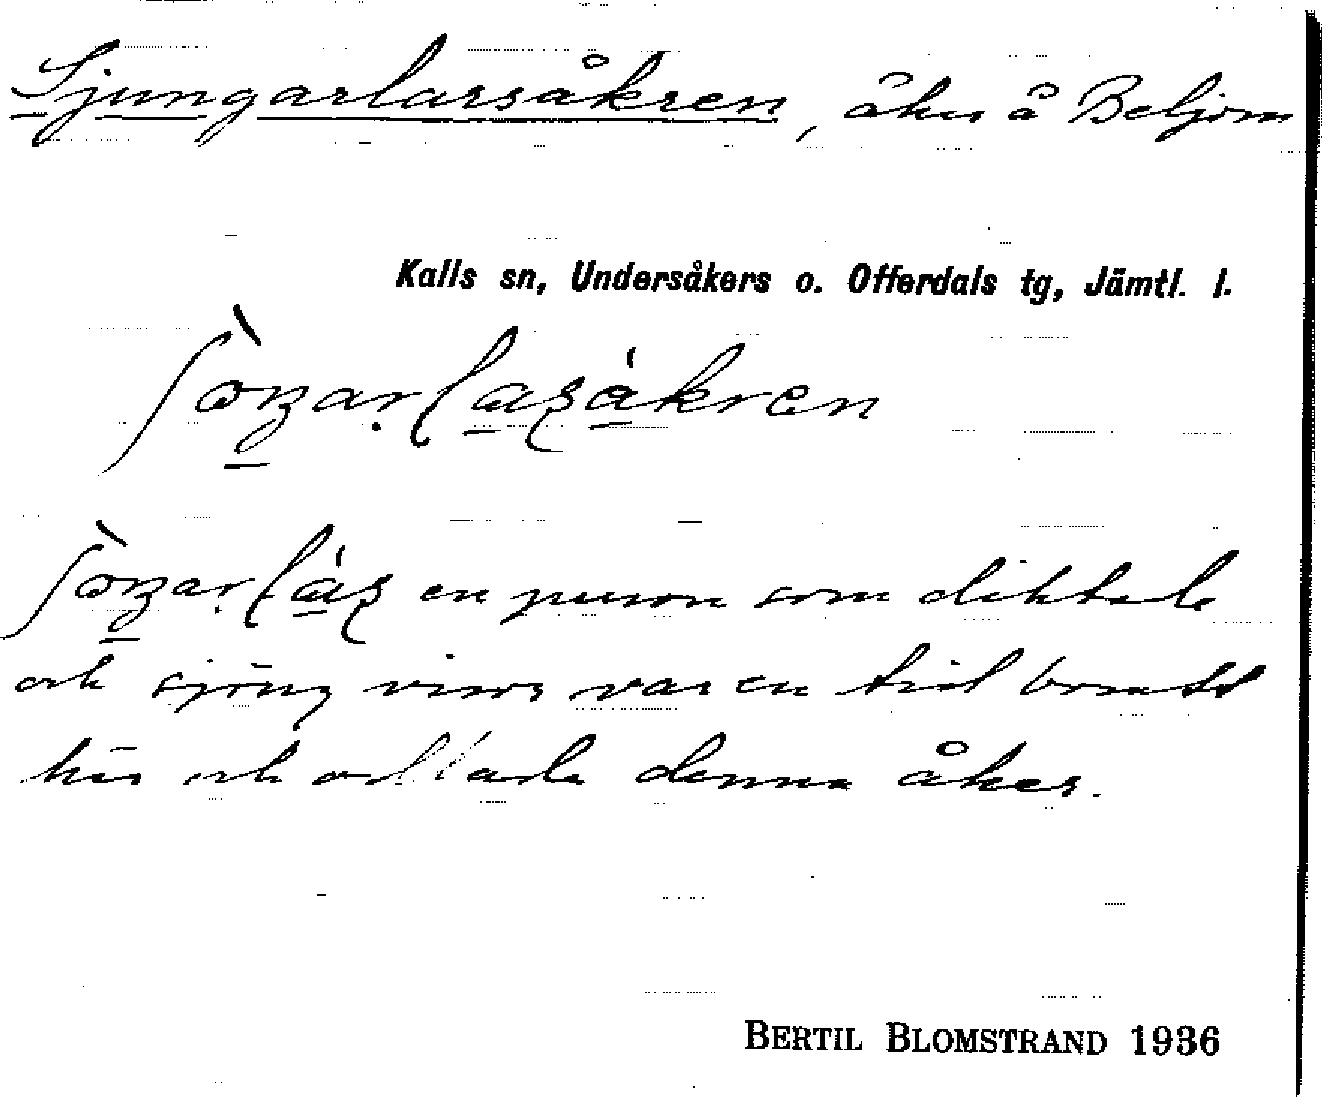 Sjungarlarsåkren, åker å Beljom
Kalls sn, Undersåkers o. Offerdals tg, Jämtl. l.
ʃòŋar lasåkren
ʃòŋar lás en person som diktade
och sjöng visor var en tid bosatt
här och odlade denna åker.
BERTIL BLOMSTRAND 1936